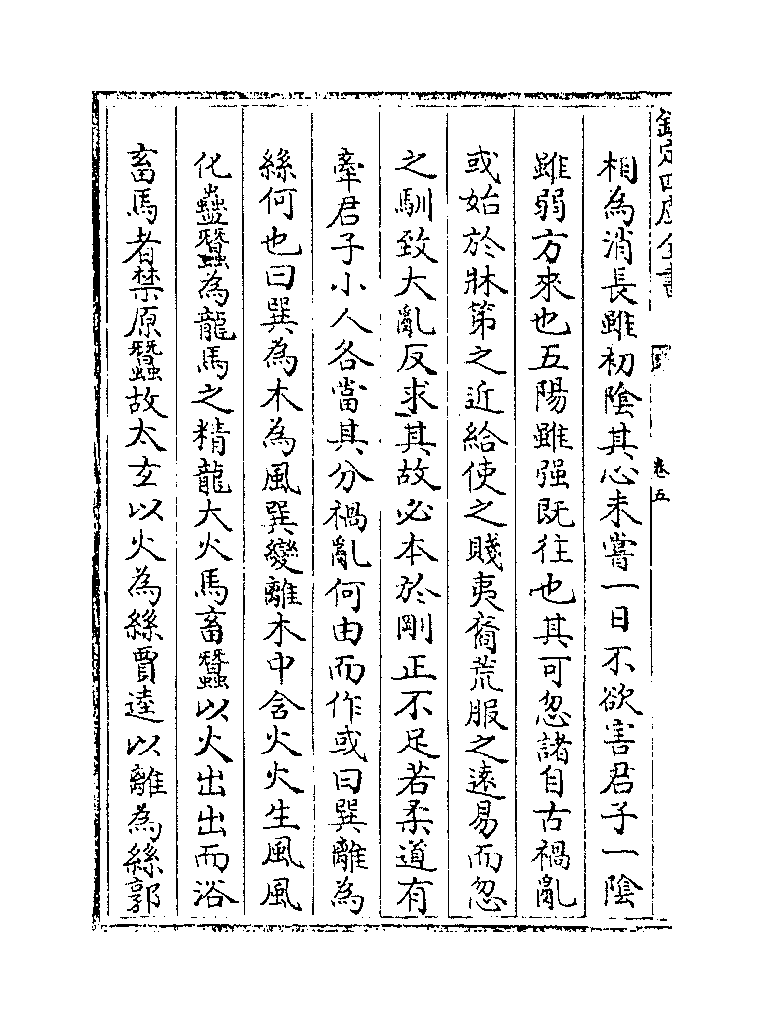 欽定四庫全書
卷五
相為消長雖初陰其心未嘗一日不欲害君子一陰
雖弱方來也五陽雖强既往也其可忽諸自古禍亂
或始於牀第之近給使之賤夷裔荒服之逺易而忽
之馴致大亂反求其故必本於剛正不足若柔道有
牽君子小人各當其分禍亂何由而作或曰巽離為
絲何也曰巽為木為風巽變離木中含火火生風風
化蠱蠶為龍馬之精龍大火馬畜蠶以火出出而浴
畜馬者禁原蠶故太玄以火為絲賈逵以離為絲郭